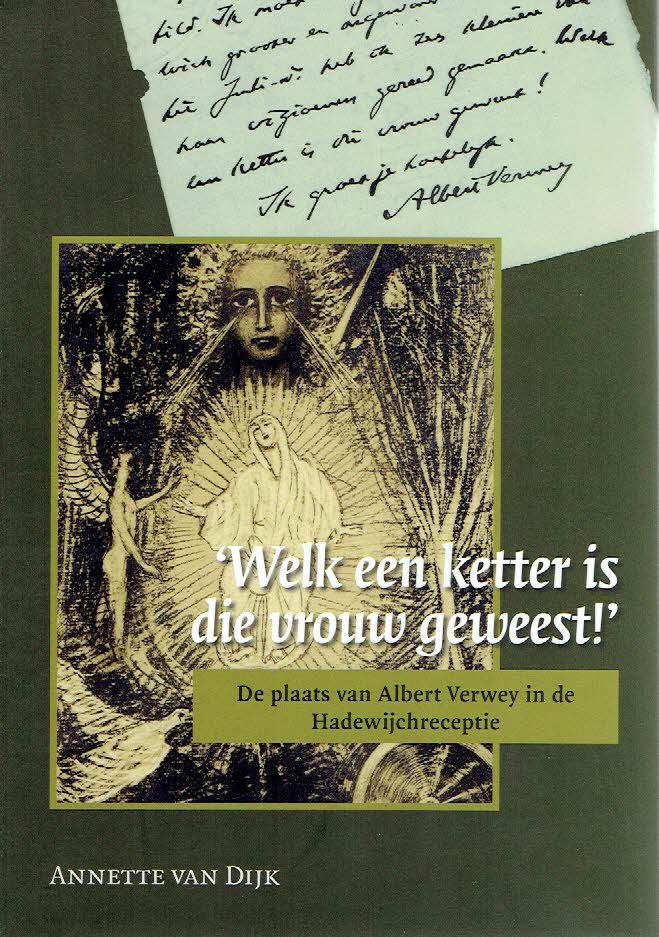 Ik
grooter en
het Juli-nr. heb ik zes kleinere van
haar vizioenen gereed gemaakt. Welk
een ketter is die vrouw geweest!
Ik groet je hartelijk.
Albert Verwey
‘Welk een ketter is
die vrouw geweest!’
De plaats van Albert Verwey in de
Hadewijchreceptie
ANNETTE VAN DIJK